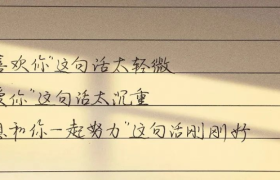 喜欢你"这句话太轻微
爱你"这句话太沉重
想和你一起努力"这句话刚刚好